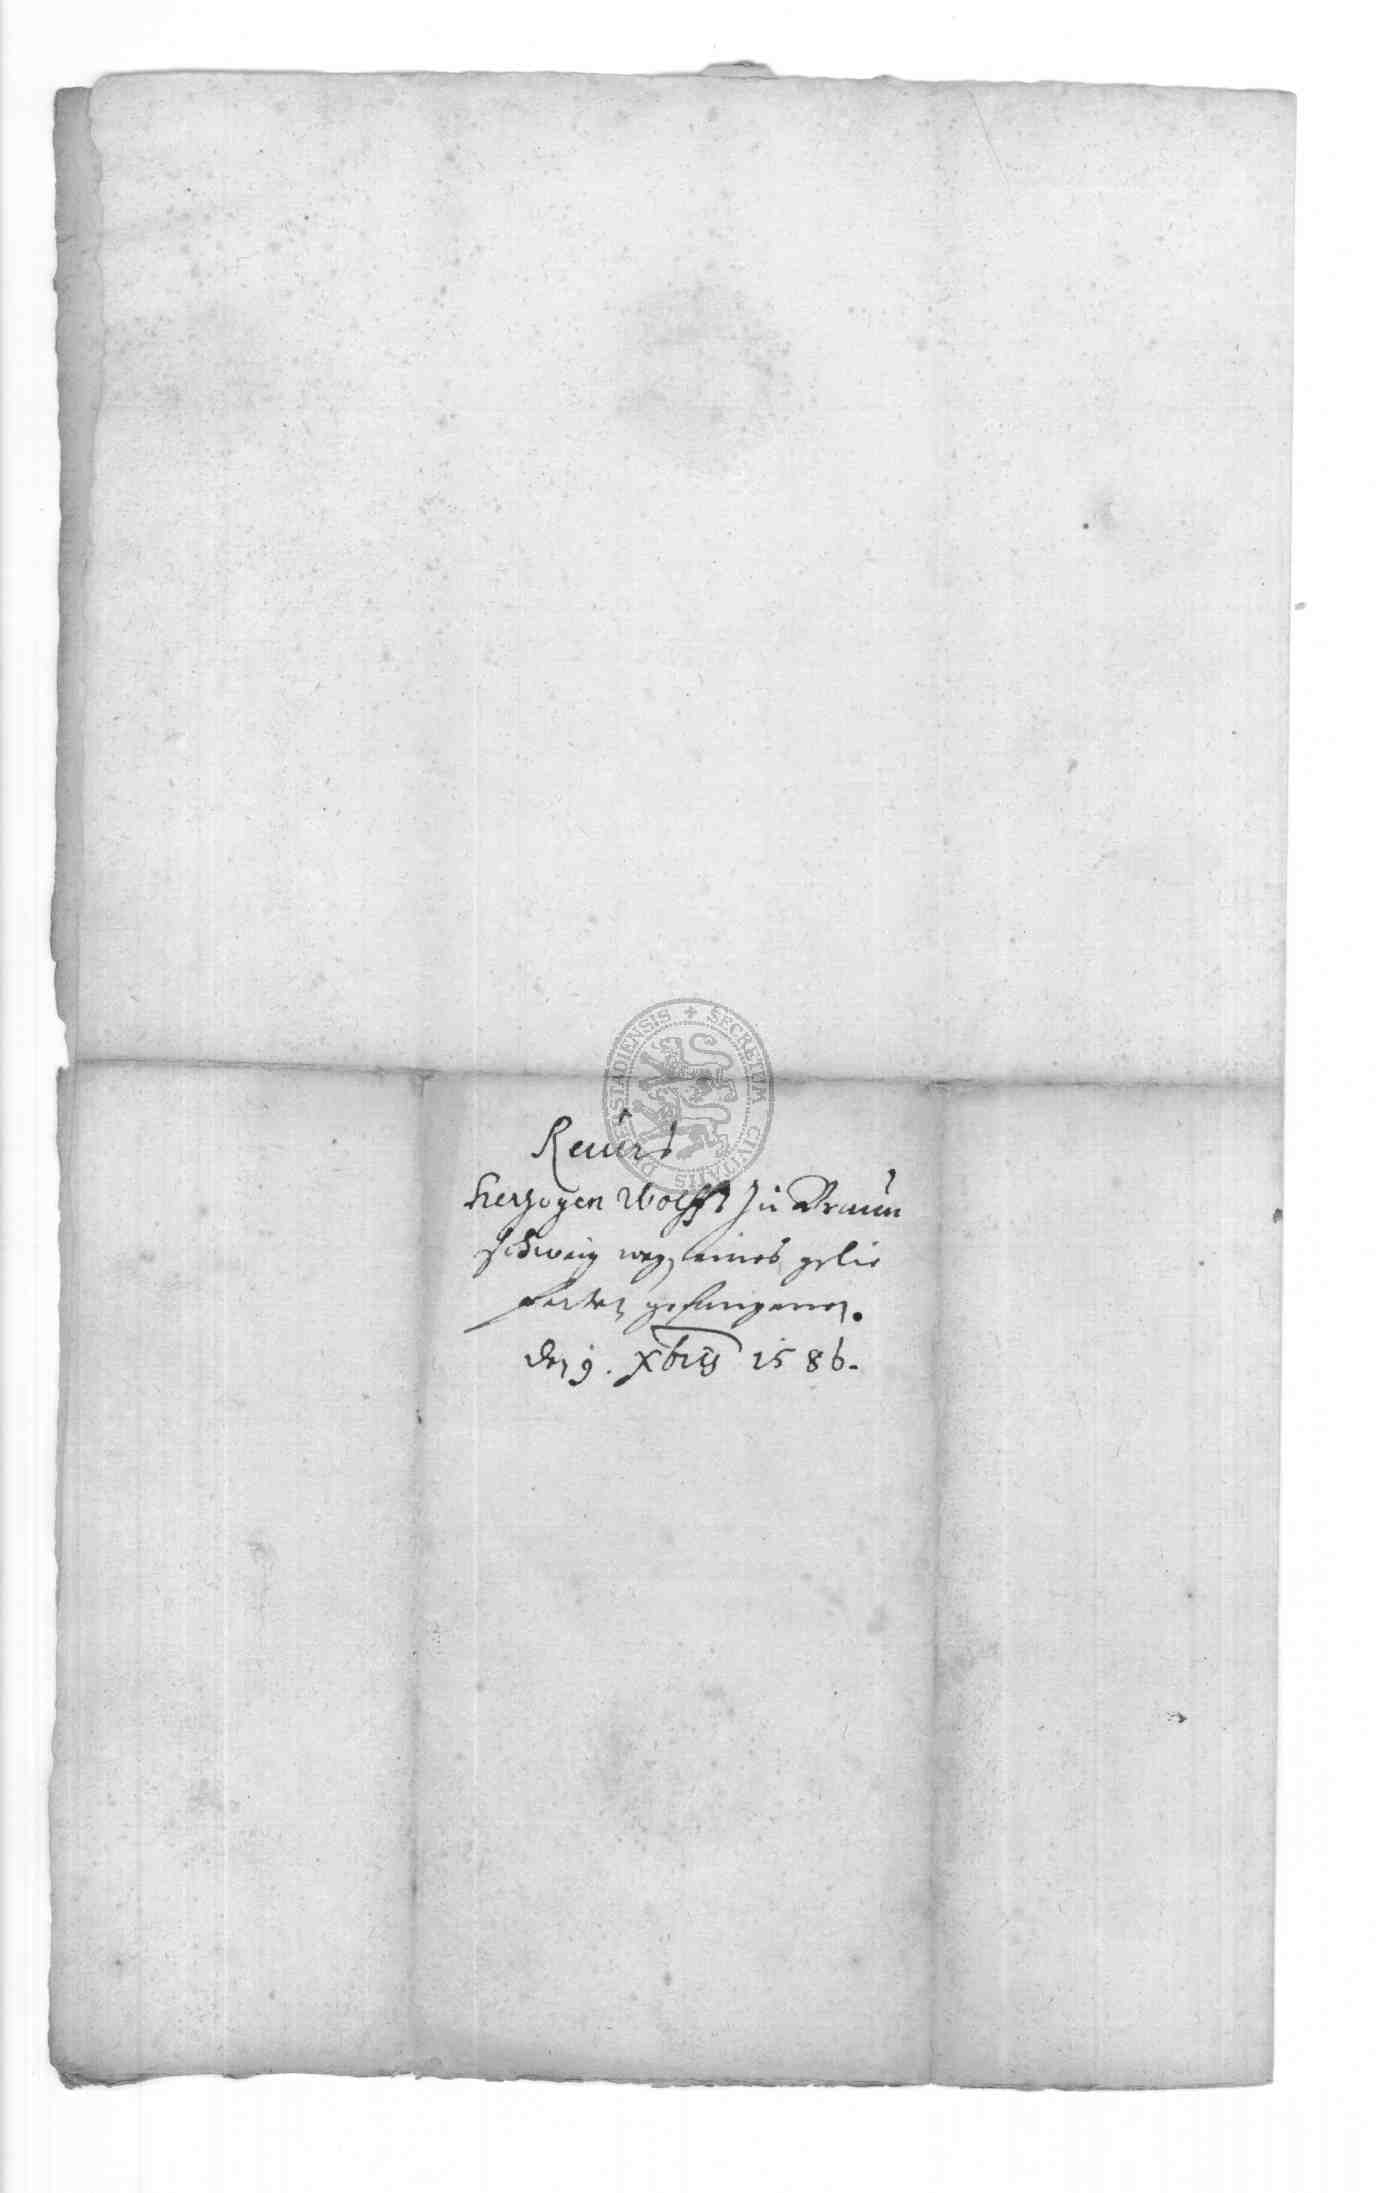 SECRETUM CIVITATIS DUDERSTADIENSIS
Reuers
Hertzogen Wolffs zu Braun
schweig weg eines gelie
ferten gefangenen.
den 9. Xbris 1586.